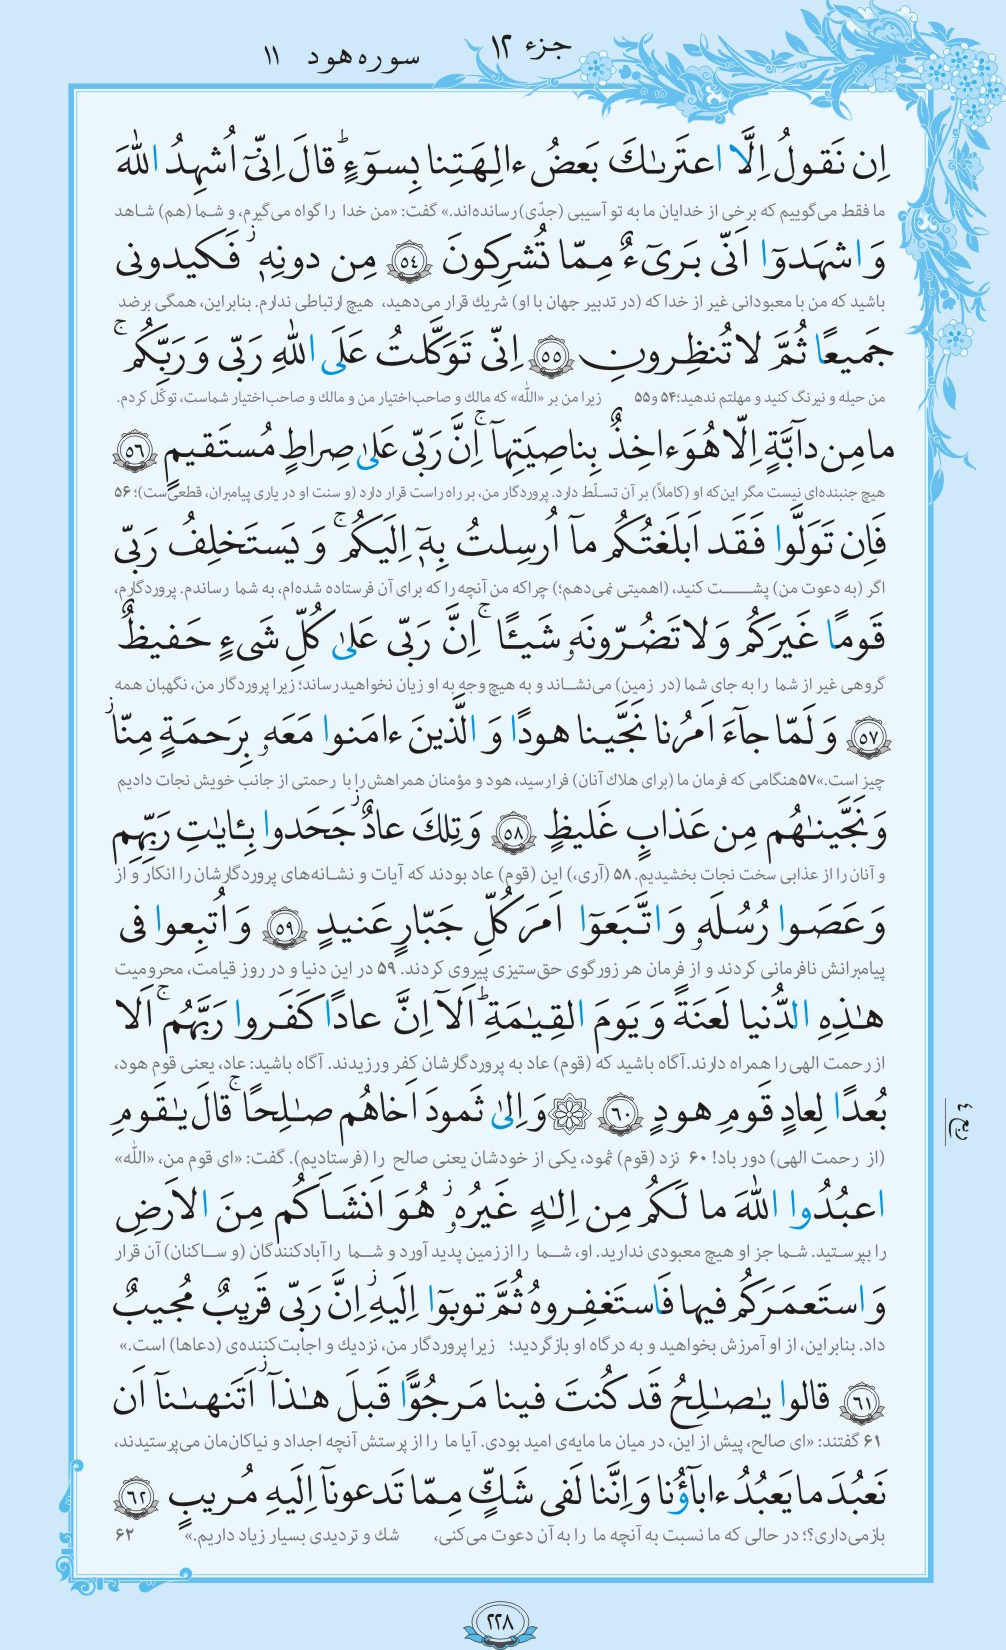 جزء ۱۲
سوره هود ۱۱
اِن نَقولُ اِلَّا اعتَرىٰكَ بَعضُ ءالِهَتِنا بِسوٓءٍ ؕ قالَ اِنّىٓ اُشهِدُ اللّٰهَ
ما فقط می‌گوییم که برخی از خدایان ما به تو آسیبی (جدّی) رسانده‌اند.» گفت: «من خدا را گواه می‌گیرم، و شما (هم) شاهد
وَاشهَدوٓا اَنّى بَرىٓءٌ مِمّا تُشرِكونَ ﴿٥٤﴾ مِن دونِهٖ ۖ فَكيدونى
باشید که من با معبودانی غیر از خدا که (در تدبیر جهان با او) شریك قرار می‌دهید، هیچ ارتباطی ندارم. بنابراین، همگی بر ضد
جَميعًا ثُمَّ لا تُنظِرونِ ﴿٥٥﴾ اِنّى تَوَكَّلتُ عَلَى اللّٰهِ رَبّى وَ رَبِّكُم ۚ
من حیله و نیرنگ کنید و مهلتم ندهید؛ ۵۴ و ۵۵ زیرا من بر «اللّٰه» که مالك و صاحب‌اختیار من و مالك و صاحب‌اختیار شماست، توکّل کردم.
ما مِن دآبَّةٍ اِلّا هُوَ ءاخِذٌ بِناصِيَتِهآ ۚ اِنَّ رَبّى عَلىٰ صِراطٍ مُستَقيمٍ ﴿٥٦﴾
هیچ جنبنده‌ای نیست مگر این‌که او (کاملاً) بر آن تسلّط دارد. پروردگار من، بر راه راست قرار دارد (و سنت او در یاری پیامبران، قطعی‌ست)؛ ۵۶
فَاِن تَوَلَّوا فَقَد اَبلَغتُكُم مآ اُرسِلتُ بِهٖٓ اِلَيكُم ۚ وَ يَستَخلِفُ رَبّى
اگر (به دعوت من) پشت کنید، (اهمیتی نمی‌دهم؛) چراکه من آنچه را که برای آن فرستاده شده‌ام، به شما رساندم. پروردگارم،
قَومًا غَيرَكُم وَ لا تَضُرّونَهٗ شَيـًٔا ۚ اِنَّ رَبّى عَلىٰ كُلِّ شَىءٍ حَفيظٌ
گروهی غیر از شما را به جای شما (در زمین) می‌نشاند و به هیچ وجه به او زیان نخواهید رساند؛ زیرا پروردگار من، نگهبان همه
﴿٥٧﴾ وَ لَمّا جآءَ اَمرُنا نَجَّينا هودًا وَ الَّذينَ ءامَنوا مَعَهٗ بِرَحمَةٍ مِنّا ۖ
چیز است.» ۵۷ هنگامی که فرمان ما (برای هلاك آنان) فرا رسید، هود و مؤمنان همراهش را با رحمتی از جانب خویش نجات دادیم
وَ نَجَّينٰهُم مِن عَذابٍ غَليظٍ ﴿٥٨﴾ وَ تِلكَ عادٌ ۖ جَحَدوا بِـٔايٰتِ رَبِّهِم
و آنان را از عذابی سخت نجات بخشیدیم. ۵۸ (آری،) این (قوم) عاد بودند که آیات و نشانه‌های پروردگارشان را انکار و از
وَ عَصَوا رُسُلَهٗ وَ اتَّبَعوٓا اَمرَ كُلِّ جَبّارٍ عَنيدٍ ﴿٥٩﴾ وَ اُتبِعوا فى
پیامبرانش نافرمانی کردند و از فرمان هر زورگوی حق‌ستیزی پیروی کردند. ۵۹ در این دنیا و در روز قیامت، محرومیت
هٰذِهِ الدُّنيا لَعنَةً وَ يَومَ القِيٰمَةِ ؕ اَلآ اِنَّ عادًا كَفَروا رَبَّهُم ۚ اَلا
از رحمت الهی را همراه دارند. آگاه باشید که (قوم) عاد به پروردگارشان کفر ورزیدند. آگاه باشید: عاد، یعنی قوم هود،
بُعدًا لِعادٍ قَومِ هودٍ ﴿٦٠﴾ ۞ وَ اِلىٰ ثَمودَ اَخاهُم صٰلِحًا ۚ قالَ يٰقَومِ
(از رحمت الهی) دور باد! ۶۰ نزد (قوم) ثمود، یکی از خودشان یعنی صالح را (فرستادیم). گفت: «ای قوم من، «اللّٰه»
ربع ٤
اعبُدُوا اللّٰهَ ما لَكُم مِن اِلٰهٍ غَيرُهٗ ۖ هُوَ اَنشَاَكُم مِنَ الاَرضِ
را بپرستید. شما جز او هیچ معبودی ندارید. او، شما را از زمین پدید آورد و شما را آبادکنندگان (و ساکنان) آن قرار
وَ استَعمَرَكُم فيها فَاستَغفِروهُ ثُمَّ توبوٓا اِلَيهِ ۚ اِنَّ رَبّى قَريبٌ مُجيبٌ
داد. بنابراین، از او آمرزش بخواهید و به درگاه او بازگردید؛ زیرا پروردگار من، نزدیك و اجابت‌کننده‌ی (دعاها) است.»
﴿٦١﴾ قالوا يٰصٰلِحُ قَد كُنتَ فينا مَرجُوًّا قَبلَ هٰذآ ۖ اَتَنهىٰنآ اَن
۶۱ گفتند: «ای صالح، پیش از این، در میان ما مایه‌ی امید بودی. آیا ما را از پرستش آنچه اجداد و نیاکان‌مان می‌پرستیدند،
نَعبُدَ ما يَعبُدُ ءابآؤُنا وَ اِنَّنا لَفى شَكٍّ مِمّا تَدعونآ اِلَيهِ مُريبٍ ﴿٦٢﴾
بازمی‌داری؟؛ در حالی که ما نسبت به آنچه ما را به آن دعوت می‌کنی، شك و تردیدی بسیار زیاد داریم.» ۶۲
۲۲۸